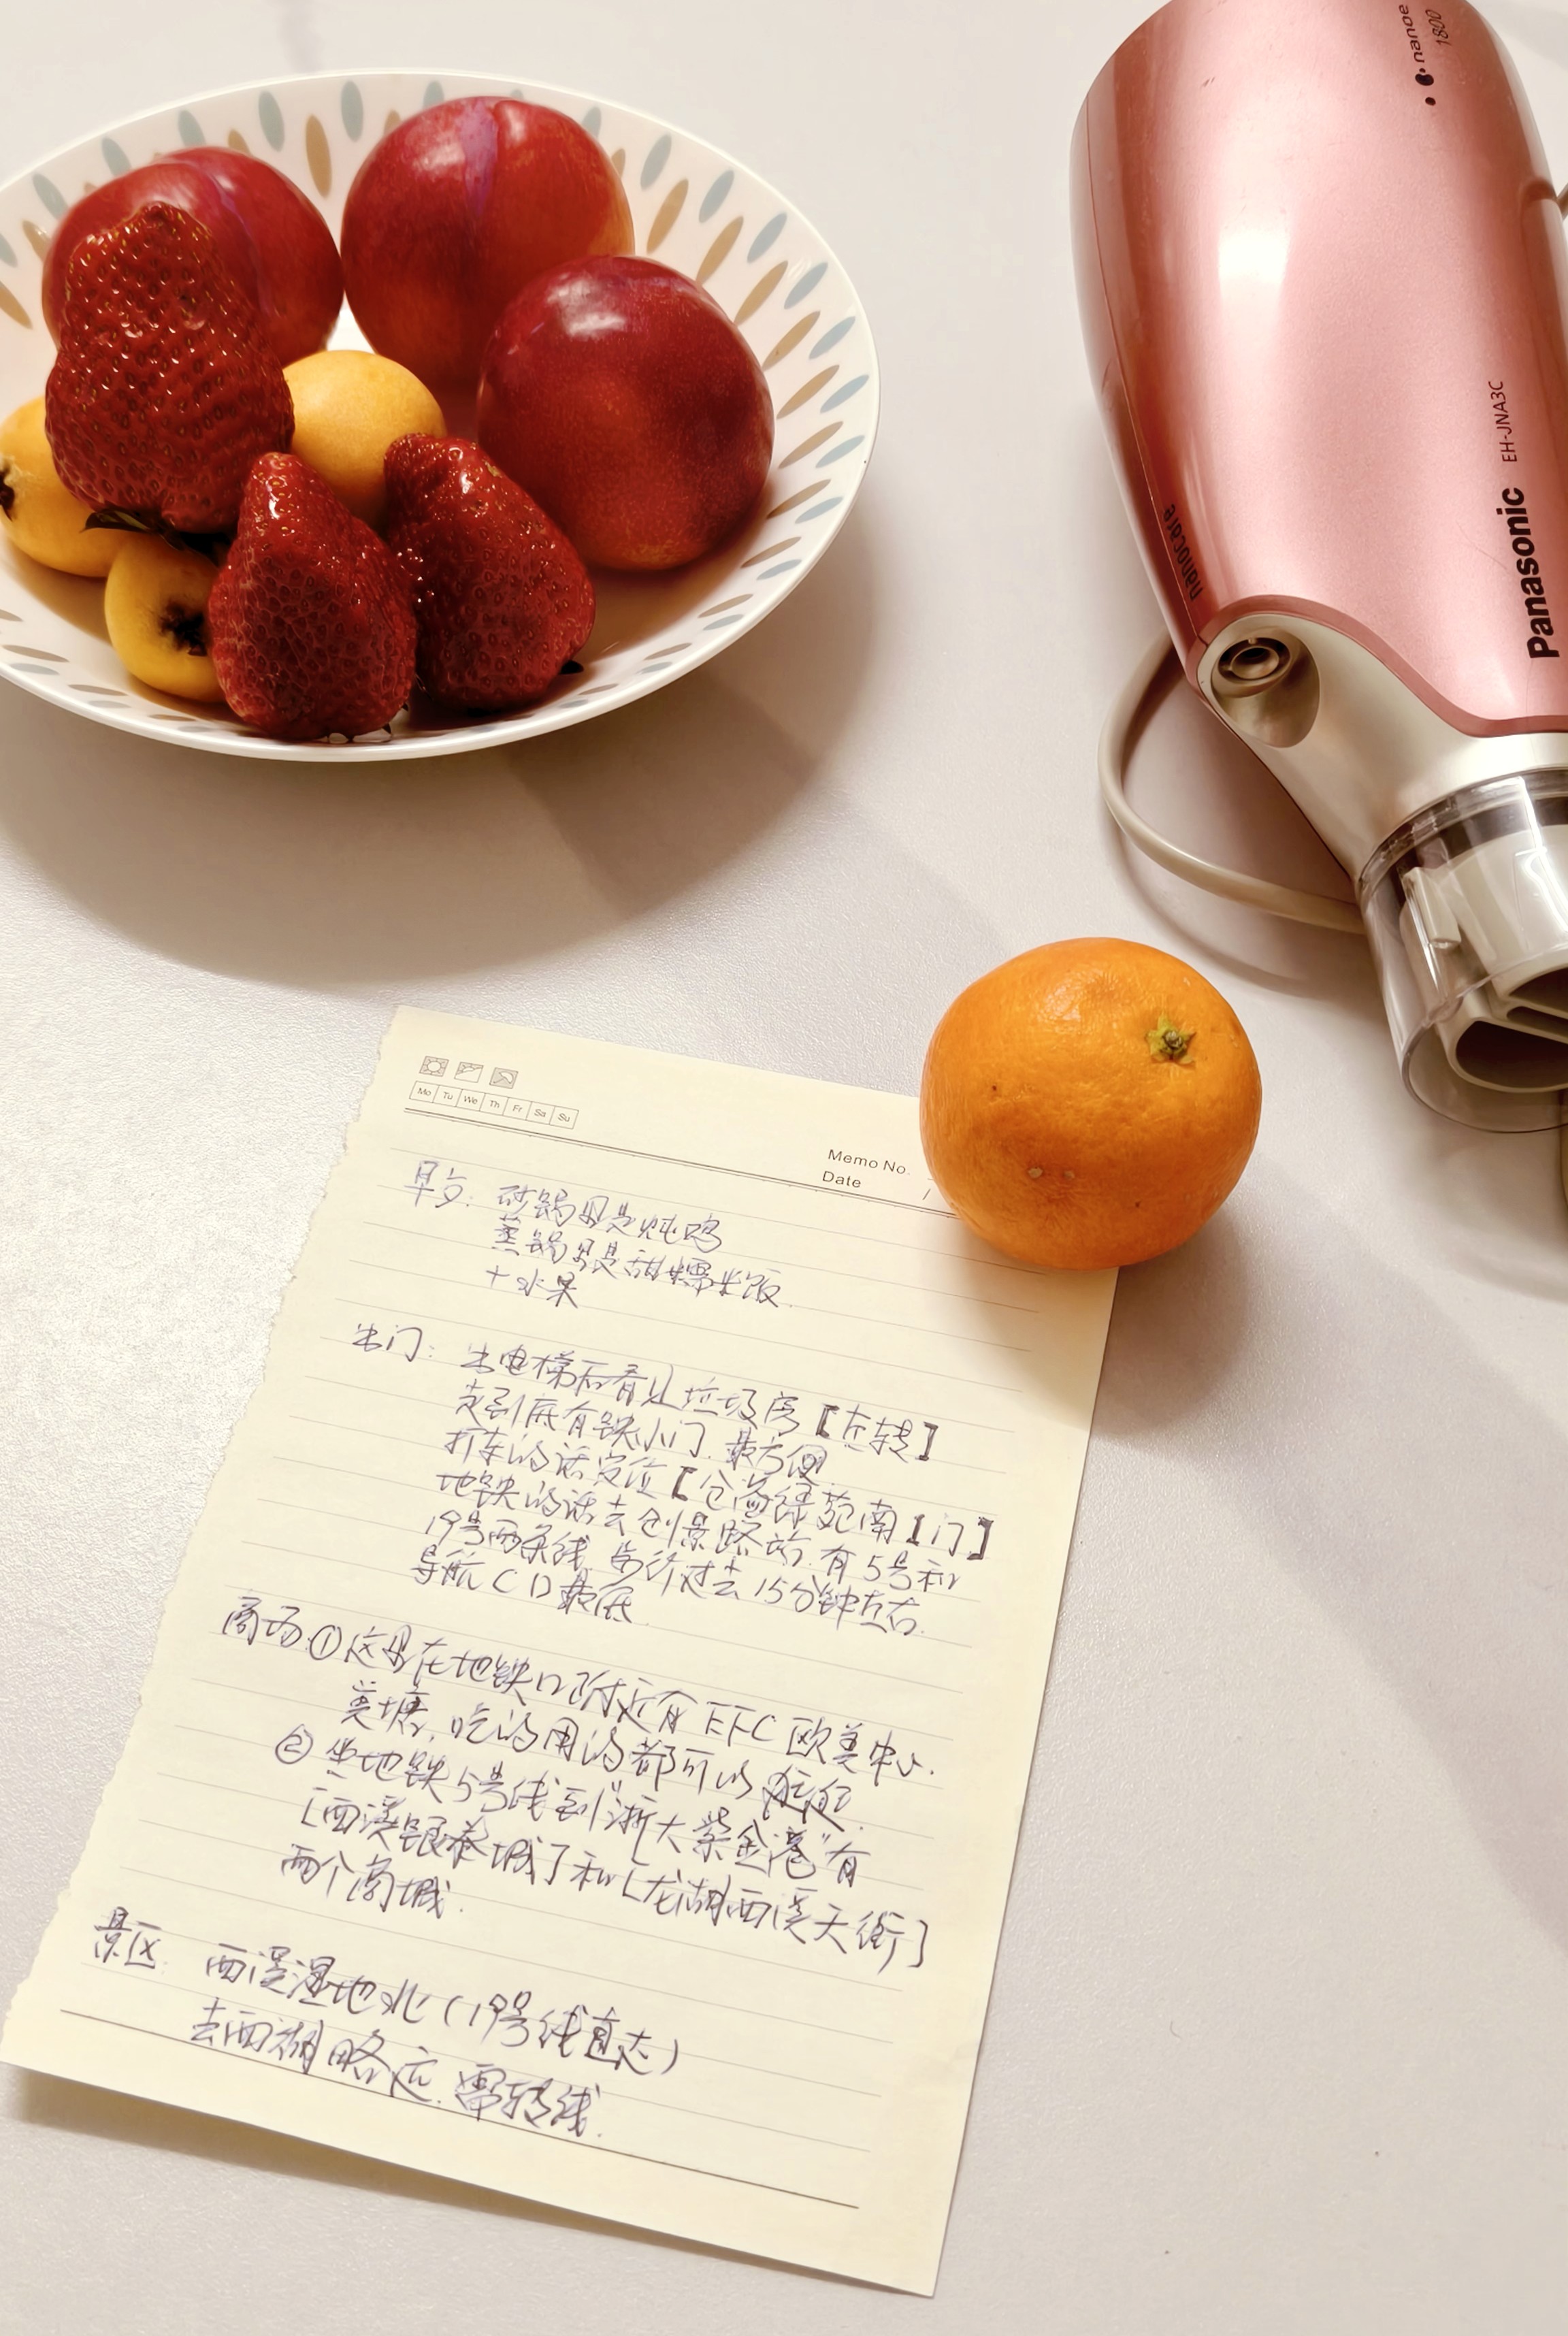 nanoe
1800
EH-JNA3C
Panasonic
nanocare
Mo Tu We Th Fr Sa Su
Memo No.
Date /
早夕: 砂锅里是炖鸡
蒸锅里是甜糯米饭.
+水果
出门: 出电梯后看让垃圾房【左转】
走到底有铁小门.最方便
打车的话定位【仓前绿苑南【门】
地铁的话去创景路站.有5号和
19号两条线.步行过去15分钟左右.
导航CD最底.
商场①这里在地铁口附近有EFC欧美中心.
美塘,吃的用的都可以逛逛.
②坐地铁5号线到"浙大紫金港"有
[西溪银泰城]和[龙湖西溪天街]
两个商城.
景区: 西溪湿地北(19号线直达)
去西湖略远.需转线.